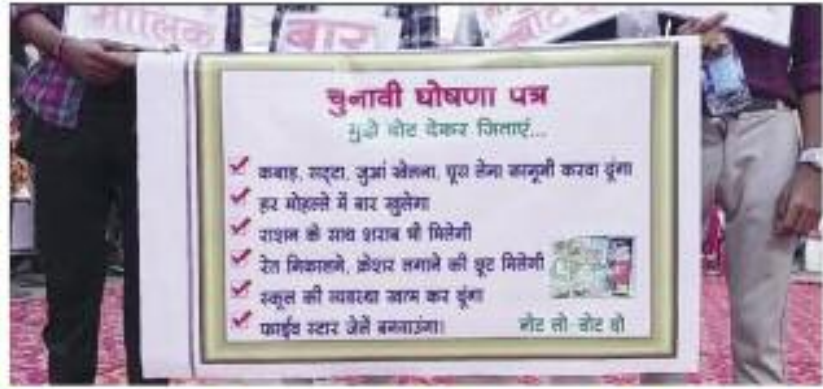 मालिक
बार
वोट
चुनावी घोषणा पत्र
मुझे वोट देकर जिताएं...
कबाड़, सट्टा, जुआं खेलना, घूस लेना कानूनी करवा दूंगा
हर मोहल्ले में बार खुलेगा
राशन के साथ शराब भी मिलेगी
रेत निकालने, क्रेशर लगाने की छूट मिलेगी
स्कूल की व्यवस्था खत्म कर दूंगा
फाईव स्टार जेलें बनवाउंगा।
नोट लो-वोट दो